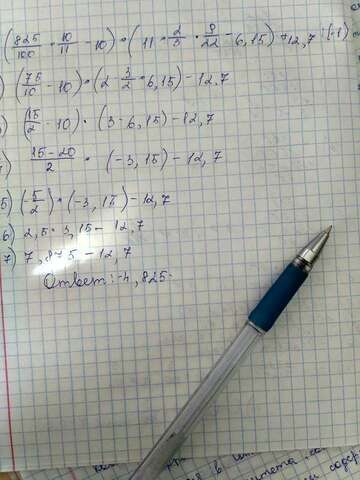 (825/100 · 10/11 - 10) · (11 · 2/3 · 9/22 - 6,15) + 12,7 : (-1)
) (75/10 - 10) · (2 · 3/2 · 6,15) - 12,7
) (15/2 - 10) · (3 - 6,15) - 12,7
) 15-20/2 · (-3,15) - 12,7
5) (-5/2) · (-3,15) - 12,7
6) 2,5 · 3,15 - 12,7
7) 7,875 - 12,7
Ответ: -4,825.